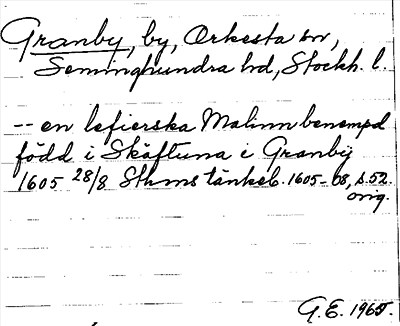 Granby, by, Orkesta sn,
Seminghundra hd, Stockh. l.
-- en lefierska Malinn benempd
född i Skäftuna i Granbÿ
1605 28/8 Sthms tänkeb. 1605-08, s. 52.
orig.
G. E. 1965.